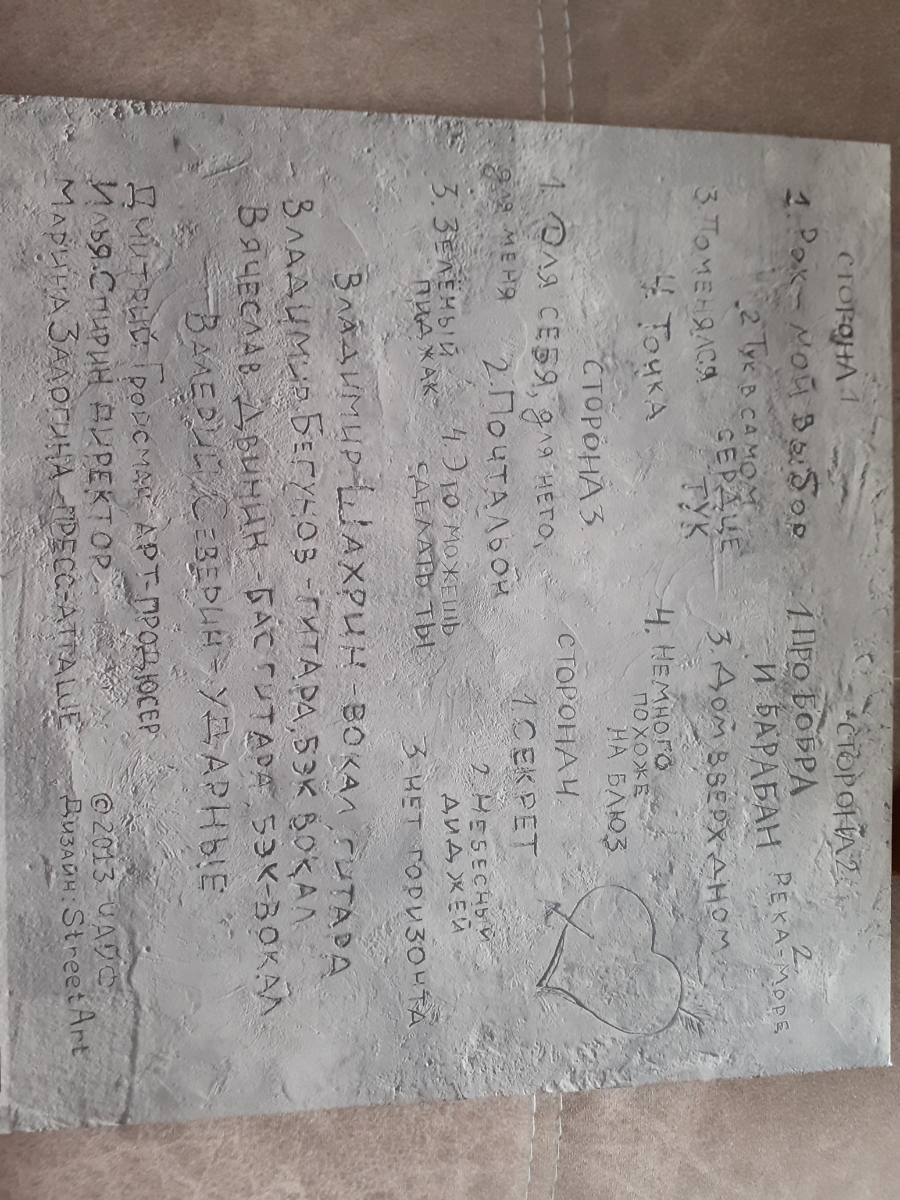 СТОРОНА 1
1. РОК - МОЙ ВЫБОР
2 ТУК В САМОМ
СЕРДЦЕ
ТУК
3 ПОМЕНЯЛСЯ
4. ТОЧКА
СТОРОНА 2.
1. ПРО БОБРА
И БАРАБАН
2
РЕКА-МОРЕ
3. ДОМ ВВЕРХ ДНОМ
4. НЕМНОГО
ПОХОЖЕ
НА БЛЮЗ
СТОРОНА 3.
1. Для СЕБЯ, для НЕГО,
для меня
2. ПОЧТАЛЬОН
3. ЗЕЛЁНЫЙ
ПИДЖАК
4. Это МОЖЕШЬ
СДЕЛАТЬ ТЫ
СТОРОНА 4.
1 СЕКРЕТ
2 НЕБЕСНЫЙ
ДИДЖЕЙ
3 НЕТ ГОРИЗОНТА
ВЛАДИМИР ШАХРИН - ВОКАЛ, ГИТАРА
ВЛАДИМИР БЕГУНОВ - ГИТАРА, БЭК ВОКАЛ
ВЯЧЕСЛАВ ДВИНИН - БАС ГИТАРА, БЭК-ВОКАЛ
ВАЛЕРИЙ СЕВЕРИН - УДАРНЫЕ
ДМИТРИЙ ГРОЙСМАН АРТ-ПРОДЮСЕР
ИЛЬЯ СПИРИН ДИРЕКТОР
МАРИНА ЗАЛОГИНА - ПРЕСС-АТТАШЕ
© 2013 ЧАЙФ
Дизайн: StreetArt